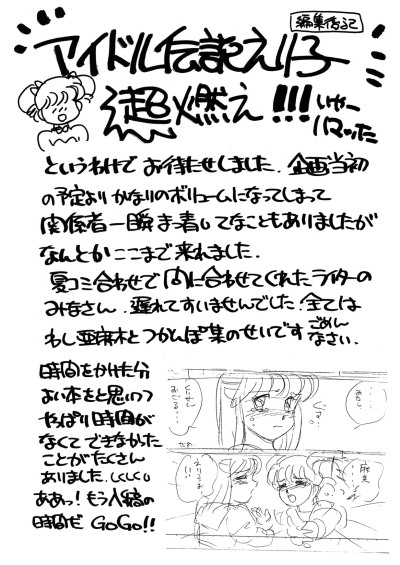 編集後記
アイドル伝説えり子
超燃え!!! いやー
ハマッた
というわけで お待たせしました. 企画当初
の予定より かなりのボリュームになってしまって
関係者一瞬 まっ青 してなこともありましたが
なんとか ここまで 来れました.
夏コミ合わせで 間に合わせてくれた ライターの
みなさん. 遅れてすいませんでした. 全ては
わし 亜麻木と つかんぽ 集のせいです ごめん
なさい.
時間をかけた分
よい本をと思いつつ
やっぱり 時間が
なくて できなかった
ことがたくさん
ありました. くくくく
ああっ! もう入稿の
時間だ GoGo!!
麻美…